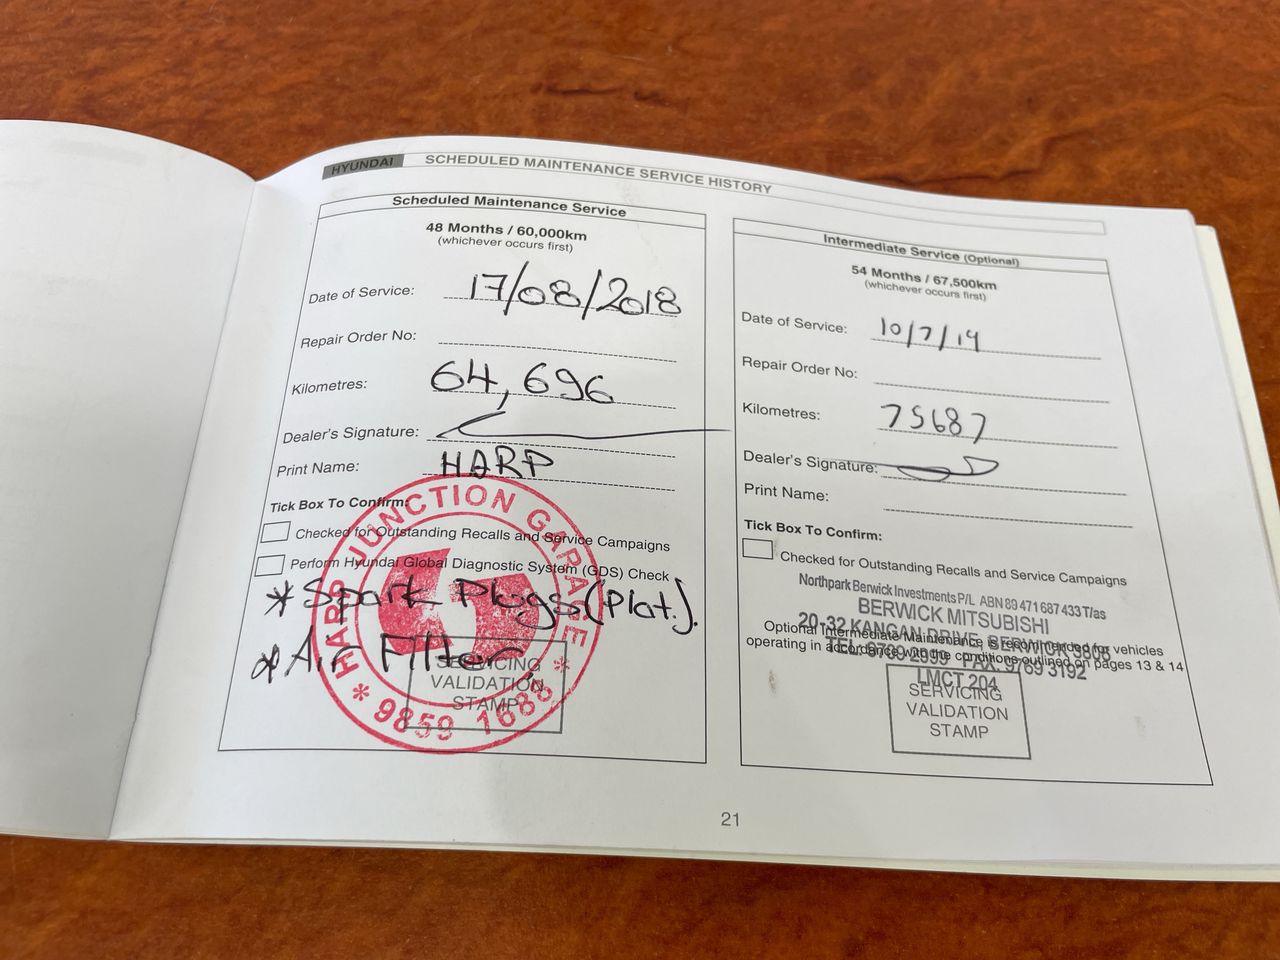 HYUNDAI SCHEDULED MAINTENANCE SERVICE HISTORY
Scheduled Maintenance Service
48 Months / 60,000km
(whichever occurs first)
Date of Service: 17/08/2018
Repair Order No:
Kilometres: 64,696
Dealer's Signature:
Print Name: HARP
Tick Box To Confirm:
Checked for Outstanding Recalls and Service Campaigns
Perform Hyundai Global Diagnostic System (GDS) Check
* Spark Plugs (Plat.).
* Air Filter
HARP JUNCTION GARAGE
* 9859 1688 *
SERVICING
VALIDATION
STAMP
Intermediate Service (Optional)
54 Months / 67,500km
(whichever occurs first)
Date of Service: 10/7/19
Repair Order No:
Kilometres: 75687
Dealer's Signature:
Print Name:
Tick Box To Confirm:
Checked for Outstanding Recalls and Service Campaigns
Northpark Berwick Investments P/L ABN 89 471 687 433 T/as
BERWICK MITSUBISHI
20-32 KANGAN DRIVE, BERWICK 3806
Optional Intermediate Maintenance is recommended for vehicles
operating in accordance with the conditions outlined on pages 13 & 14
TEL: 9769 2999 FAX: 9769 3192
LMCT 204
SERVICING
VALIDATION
STAMP
21